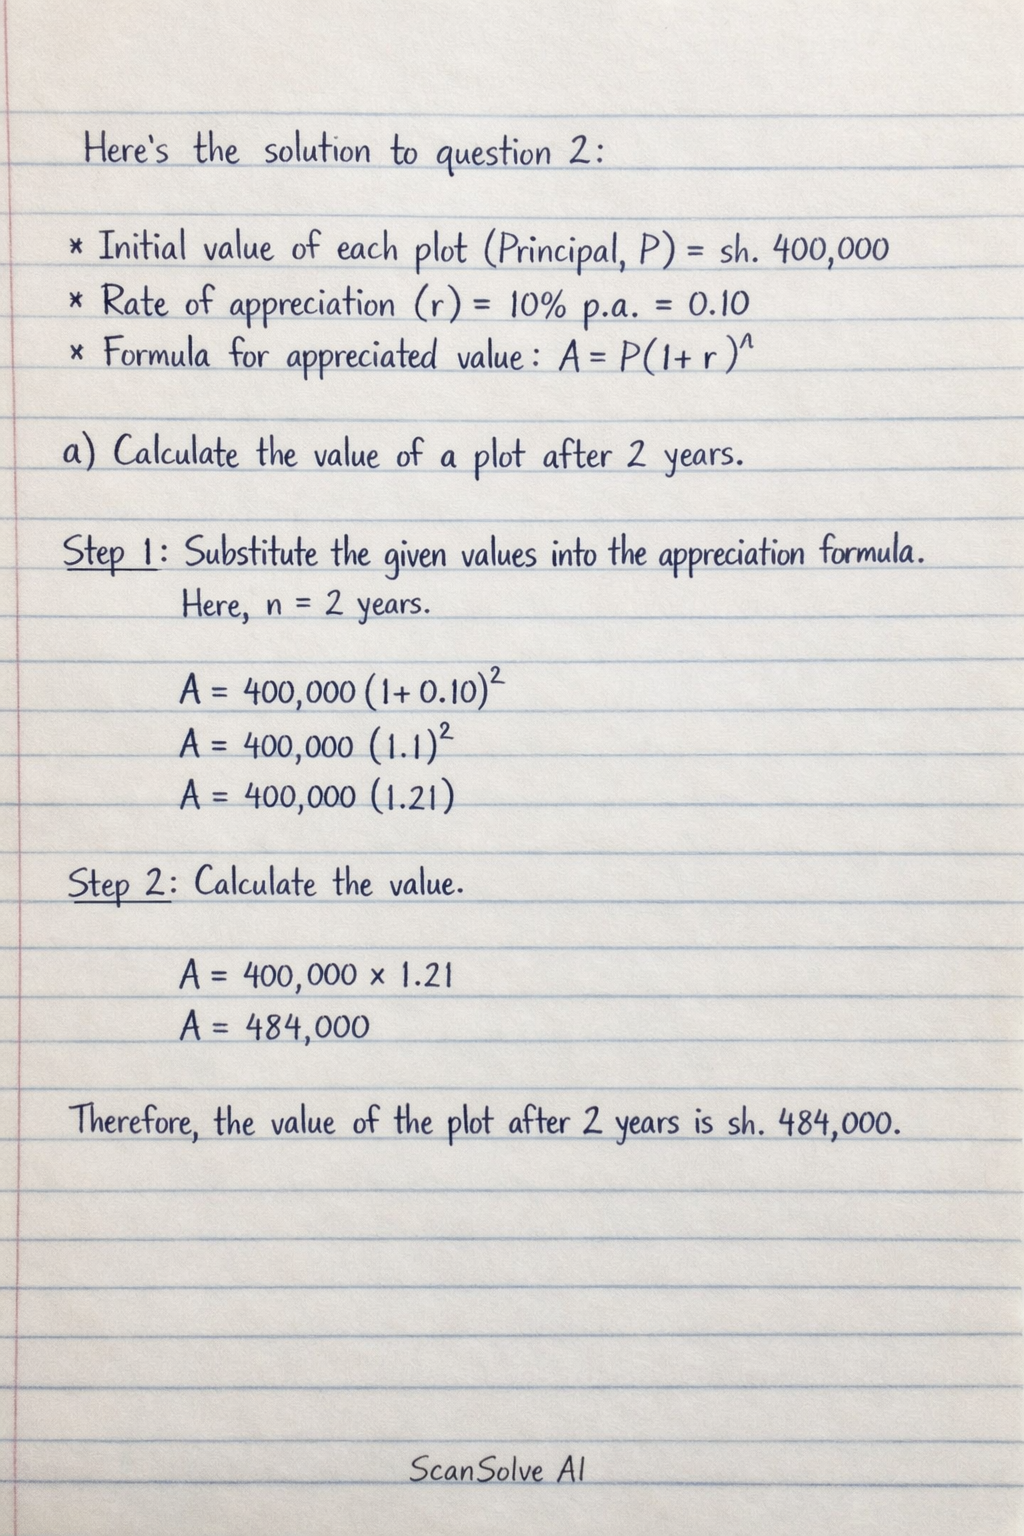 Here's the solution to question 2:
* Initial value of each plot (Principal, P) = sh. 400,000
* Rate of appreciation (r) = 10% p.a. = 0.10
* Formula for appreciated value: A = P(1+ r)^n
a) Calculate the value of a plot after 2 years.
Step 1: Substitute the given values into the appreciation formula.
Here, n = 2 years.
A = 400,000 (1+ 0.10)²
A = 400,000 (1.1)²
A = 400,000 (1.21)
Step 2: Calculate the value.
A = 400,000 × 1.21
A = 484,000
Therefore, the value of the plot after 2 years is sh. 484,000.
ScanSolve AI